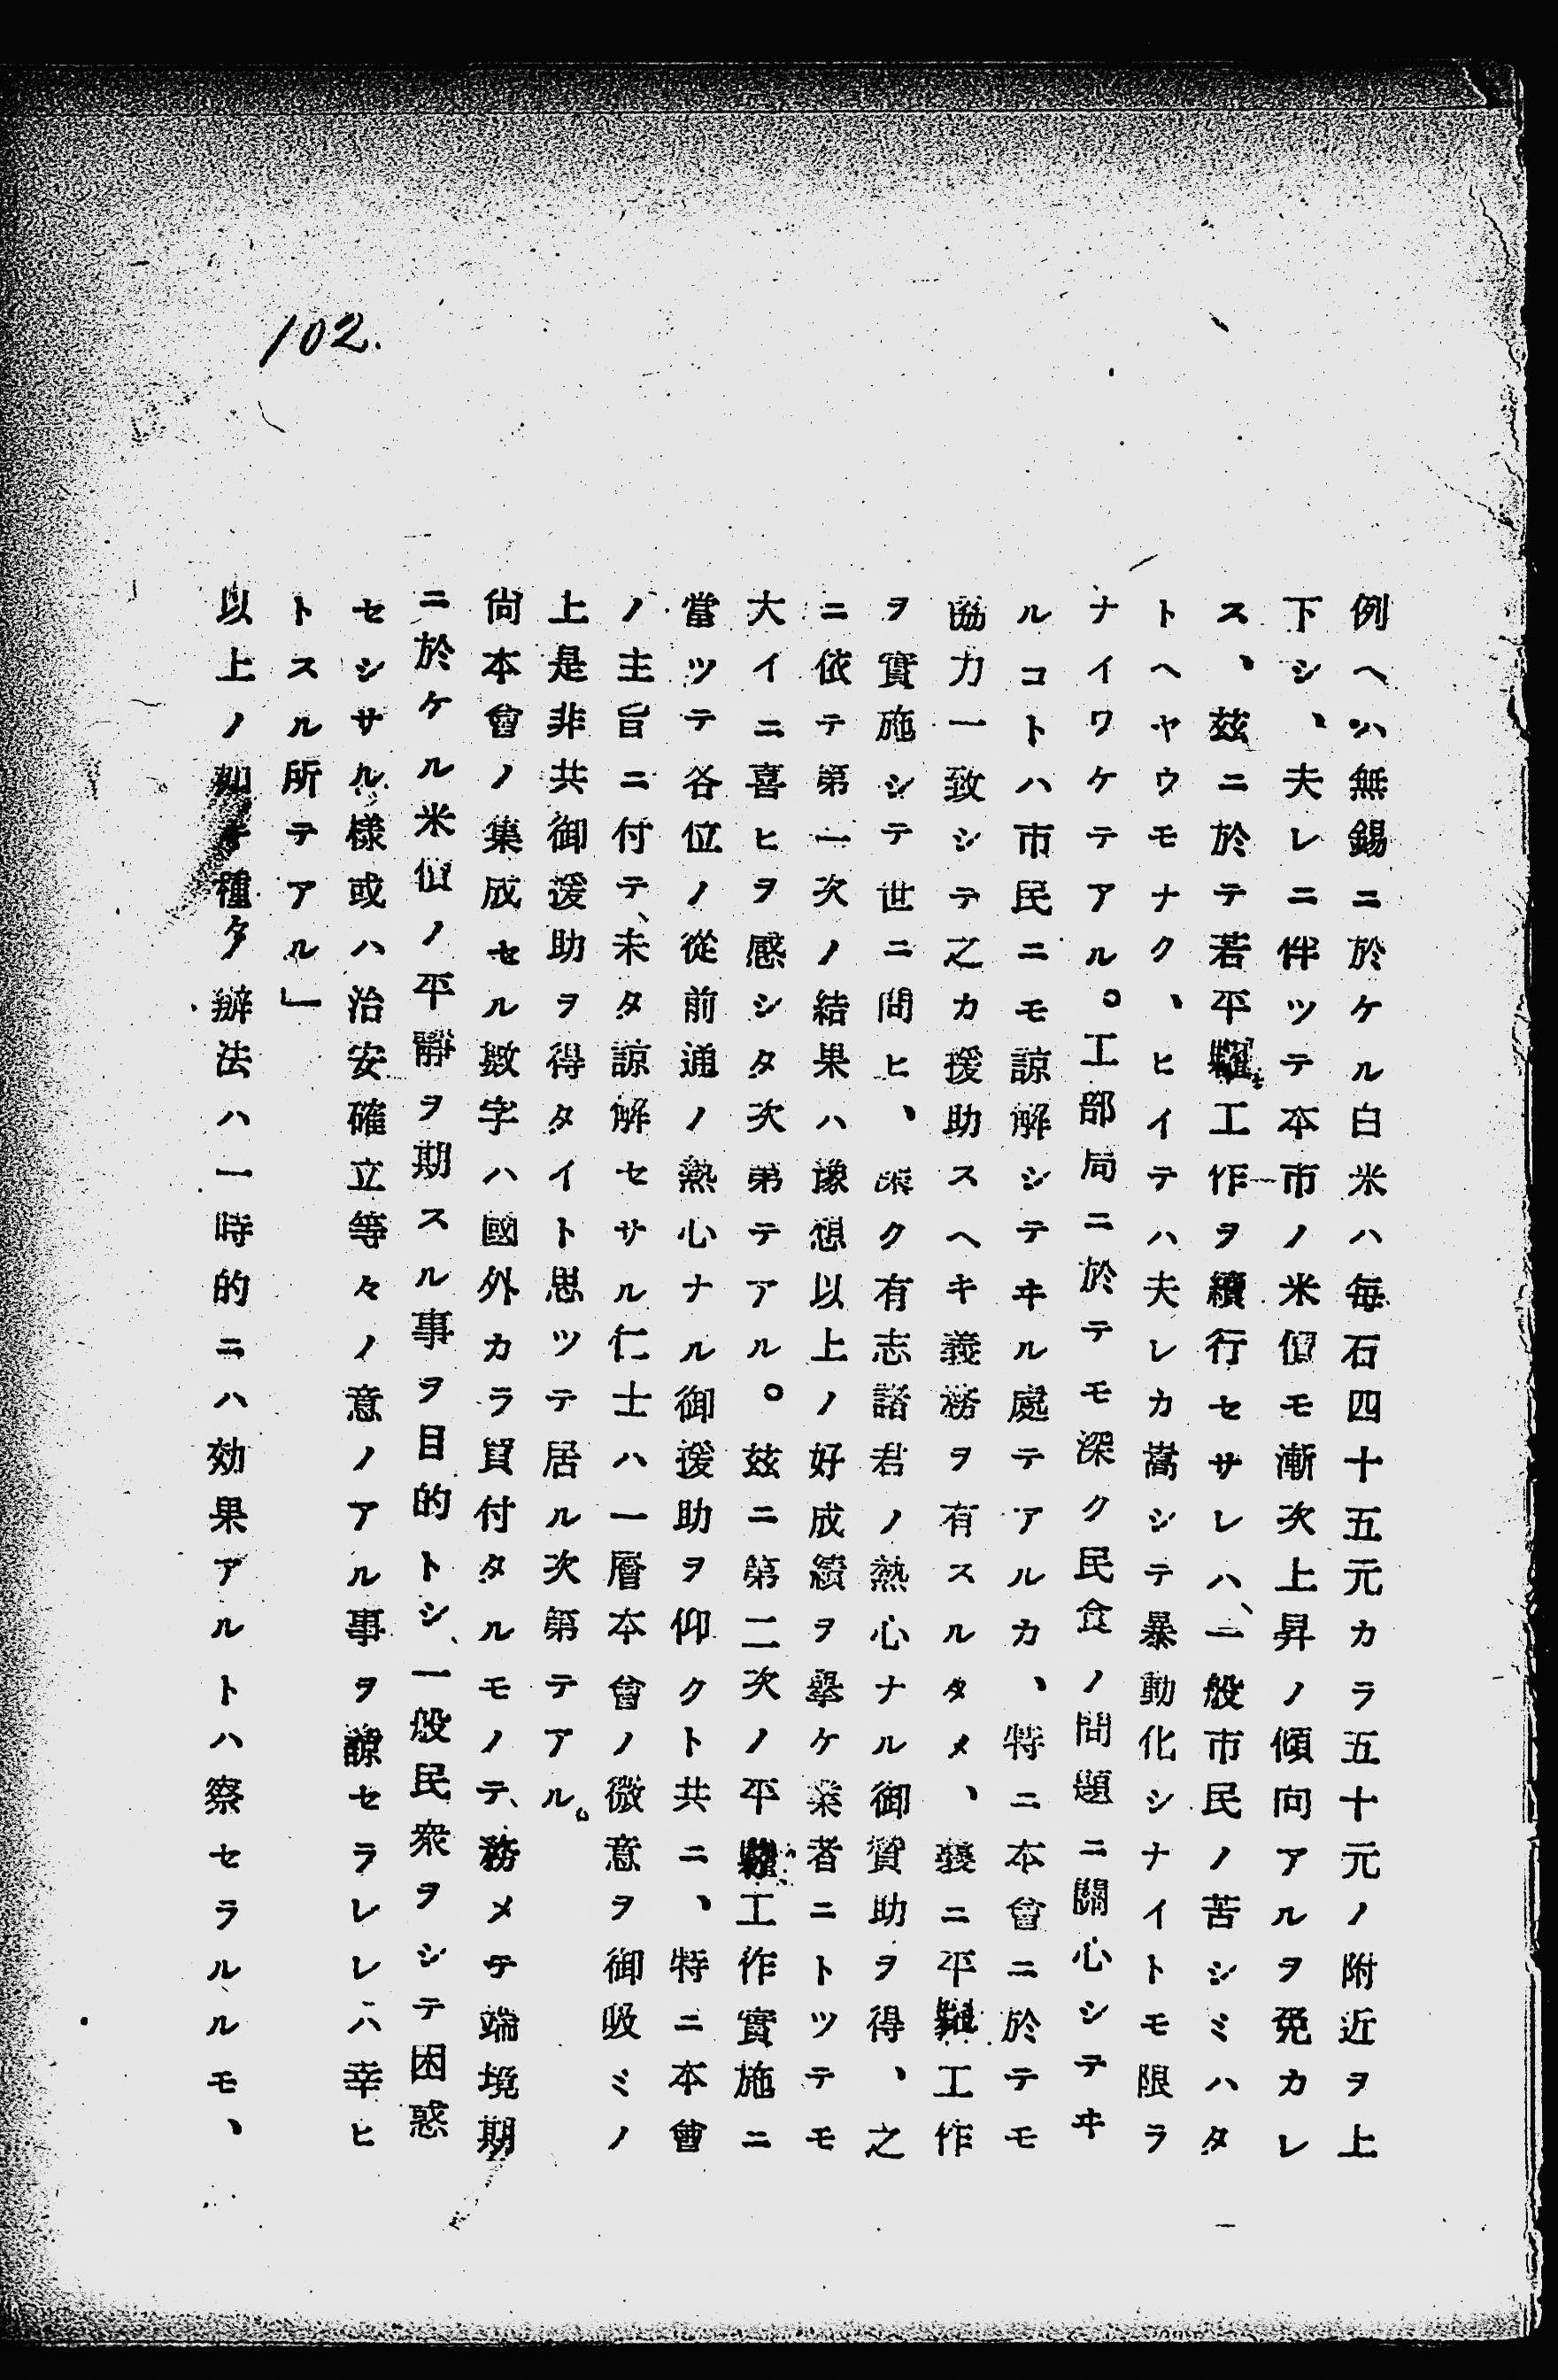 102.
例ヘハ無錫ニ於ケル白米ハ毎石四十五元カラ五十元ノ附近ヲ上
下シ、夫レニ伴ツテ本市ノ米価モ漸次上昇ノ傾向アルヲ免カレ
ス、茲ニ於テ若平糶工作ヲ續行セサレハ、一般市民ノ苦シミハタ
トヘヤウモナク、ヒイテハ夫レカ嵩シテ暴動化シナイトモ限ラ
ナイワケテアル。工部局ニ於テモ深ク民食ノ問題ニ關心シテヰ
ルコトハ市民ニモ諒解シテヰル處テアルカ、特ニ本會ニ於テモ
協力一致シテ之カ援助スヘキ義務ヲ有スルタメ、襄ニ平糶工作
ヲ實施シテ世ニ問ヒ、深ク有志諸君ノ熱心ナル御賛助ヲ得、之
ニ依テ第一次ノ結果ハ豫想以上ノ好成績ヲ擧ケ業者ニトツテモ
大イニ喜ヒヲ感シタ次第テアル。茲ニ第二次ノ平糶工作實施ニ
當ツテ各位ノ從前通ノ熱心ナル御援助ヲ仰クト共ニ、特ニ本會
ノ主旨ニ付テ、未タ諒解セサル仁士ハ一層本會ノ微意ヲ御吸ミノ
上是非共御援助ヲ得タイト思ツテ居ル次第テアル。
尙本會ノ集成セル數字ハ國外カラ買付タルモノテ、務メテ端境期
ニ於ケル米価ノ平靜ヲ期スル事ヲ目的トシ、一般民衆ヲシテ困惑
セシサル樣或ハ治安確立等々ノ意ノアル事ヲ諒セラレレハ幸ヒ
トスル所テアル」
以上ノ如キ種々辦法ハ一時的ニハ効果アルトハ察セラルルモ、